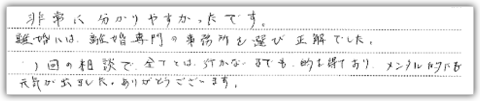 非常に分かりやすかったです。
離婚には、離婚専門の事務所を選び正解でした。
1回の相談で、全てとは、行かないまでも、的を得ており、メンタル的にも
元気が出ました。ありがとうございます。